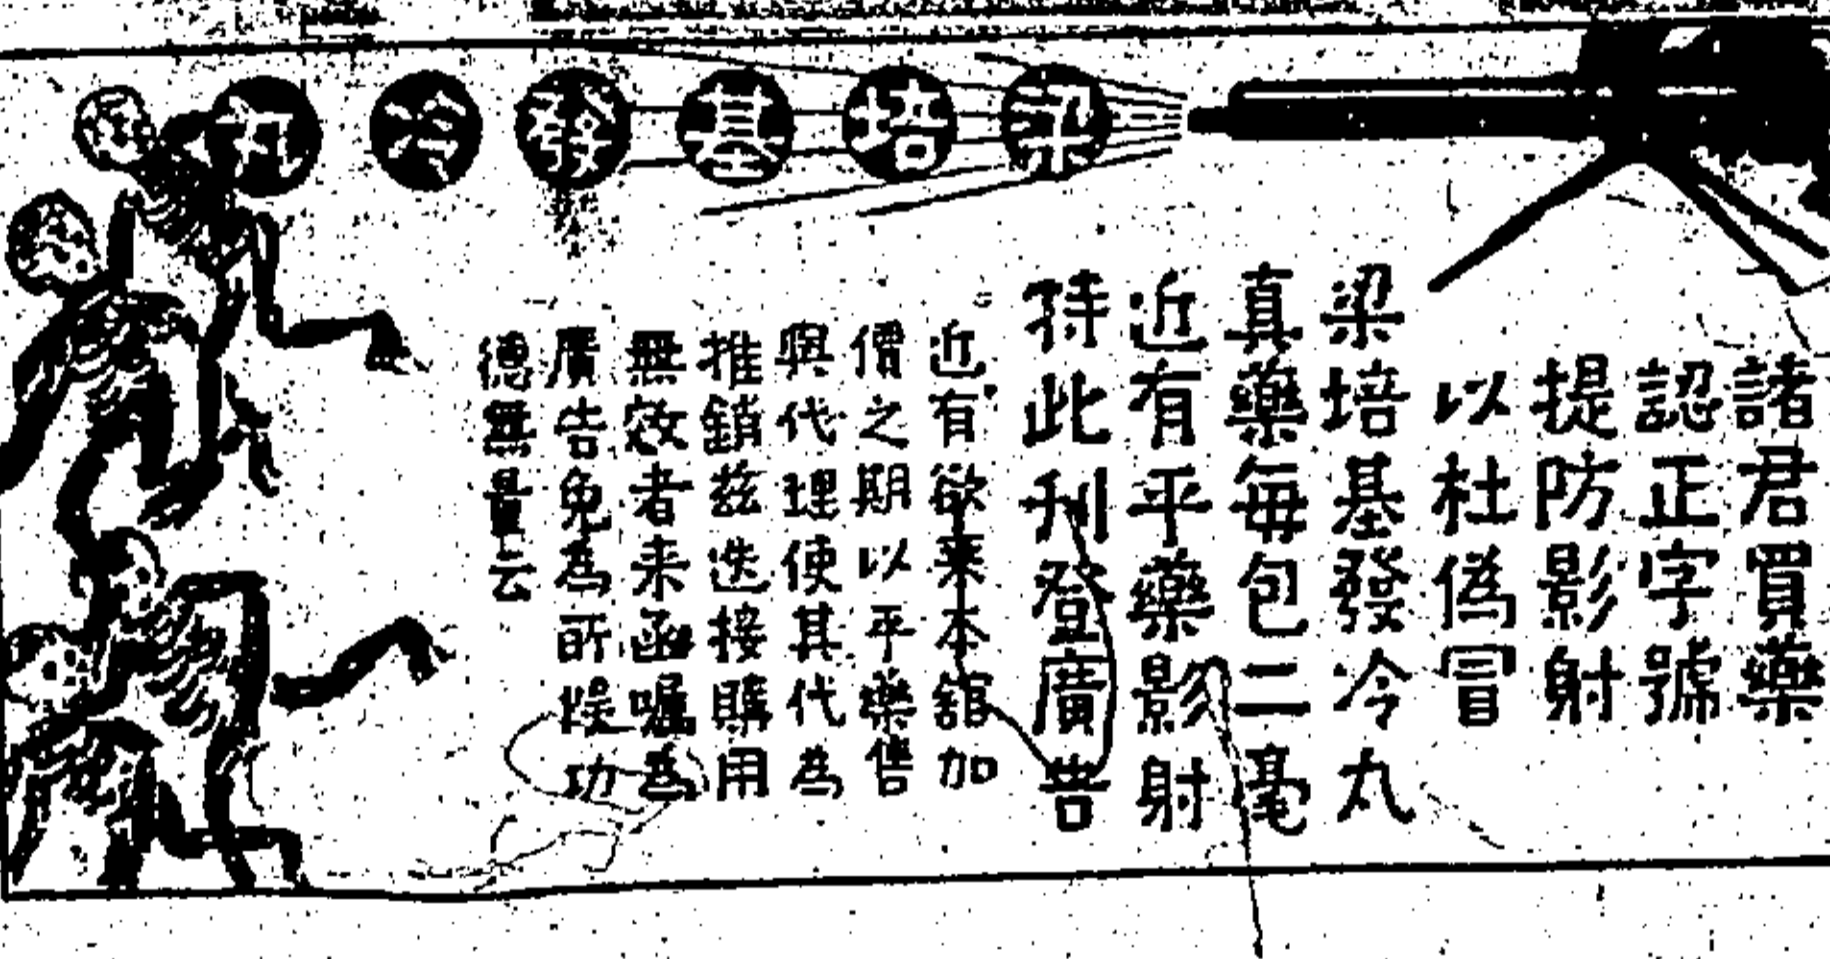 梁培基發冷丸
諸君買藥
認正字號
提防影射
以杜偽冒
梁培基發冷丸
真藥每包二毫
近有平藥影射
待此刊登廣告
近有欲來本舘加
價之期以平藥售
與代理使其代為
推銷茲迭接購用
無效者来函囑為
廣告免為所悮功
德無量云